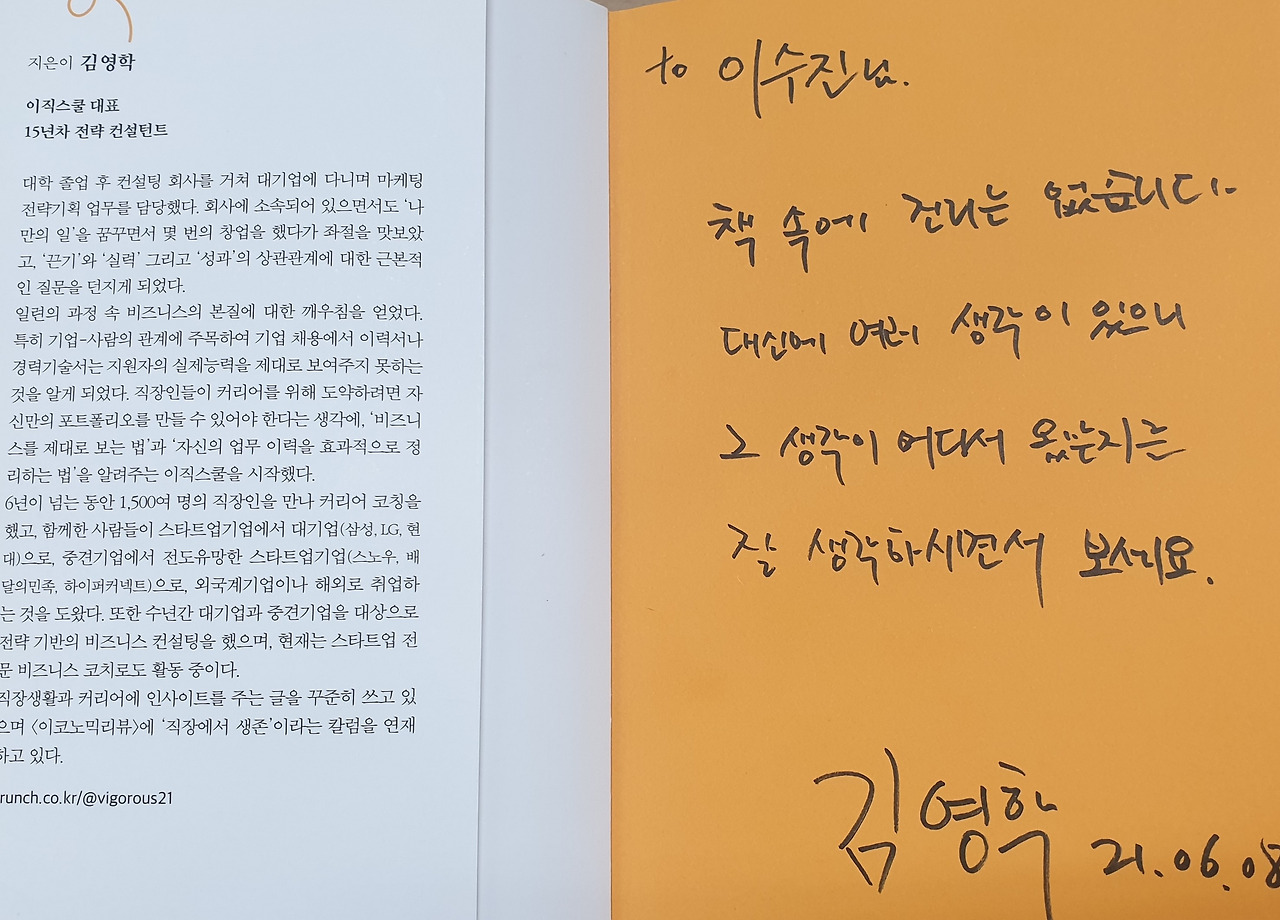 지은이 김영학
이직스쿨 대표
15년차 전략 컨설턴트
대학 졸업 후 컨설팅 회사를 거쳐 대기업에 다니며 마케팅
전략기획 업무를 담당했다. 회사에 소속되어 있으면서도 ‘나
만의 일’을 꿈꾸면서 몇 번의 창업을 했다가 좌절을 맛보았
고, ‘끈기’와 ‘실력’ 그리고 ‘성과’의 상관관계에 대한 근본적
인 질문을 던지게 되었다.
일련의 과정 속 비즈니스의 본질에 대한 깨우침을 얻었다.
특히 기업-사람의 관계에 주목하여 기업 채용에서 이력서나
경력기술서는 지원자의 실제능력을 제대로 보여주지 못하는
것을 알게 되었다. 직장인들이 커리어를 위해 도약하려면 자
신만의 포트폴리오를 만들 수 있어야 한다는 생각에, ‘비즈니
스를 제대로 보는 법’과 ‘자신의 업무 이력을 효과적으로 정
리하는 법’을 알려주는 이직스쿨을 시작했다.
6년이 넘는 동안 1,500여 명의 직장인을 만나 커리어 코칭을
했고, 함께한 사람들이 스타트업기업에서 대기업(삼성, LG, 현
대)으로, 중견기업에서 전도유망한 스타트업기업(스노우, 배
달의민족, 하이퍼커넥트)으로, 외국계기업이나 해외로 취업하
는 것을 도왔다. 또한 수년간 대기업과 중견기업을 대상으로
전략 기반의 비즈니스 컨설팅을 했으며, 현재는 스타트업 전
문 비즈니스 코치로도 활동 중이다.
직장생활과 커리어에 인사이트를 주는 글을 꾸준히 쓰고 있
으며 〈이코노믹리뷰〉에 ‘직장에서 생존’이라는 칼럼을 연재
하고 있다.
runch.co.kr/@vigorous21
to 이수진님.
책 속에 진리는 없습니다.
대신에 여러 생각이 있으니
그 생각이 어디서 왔는지는
잘 생각하시면서 보세요.
김영학
21.06.08